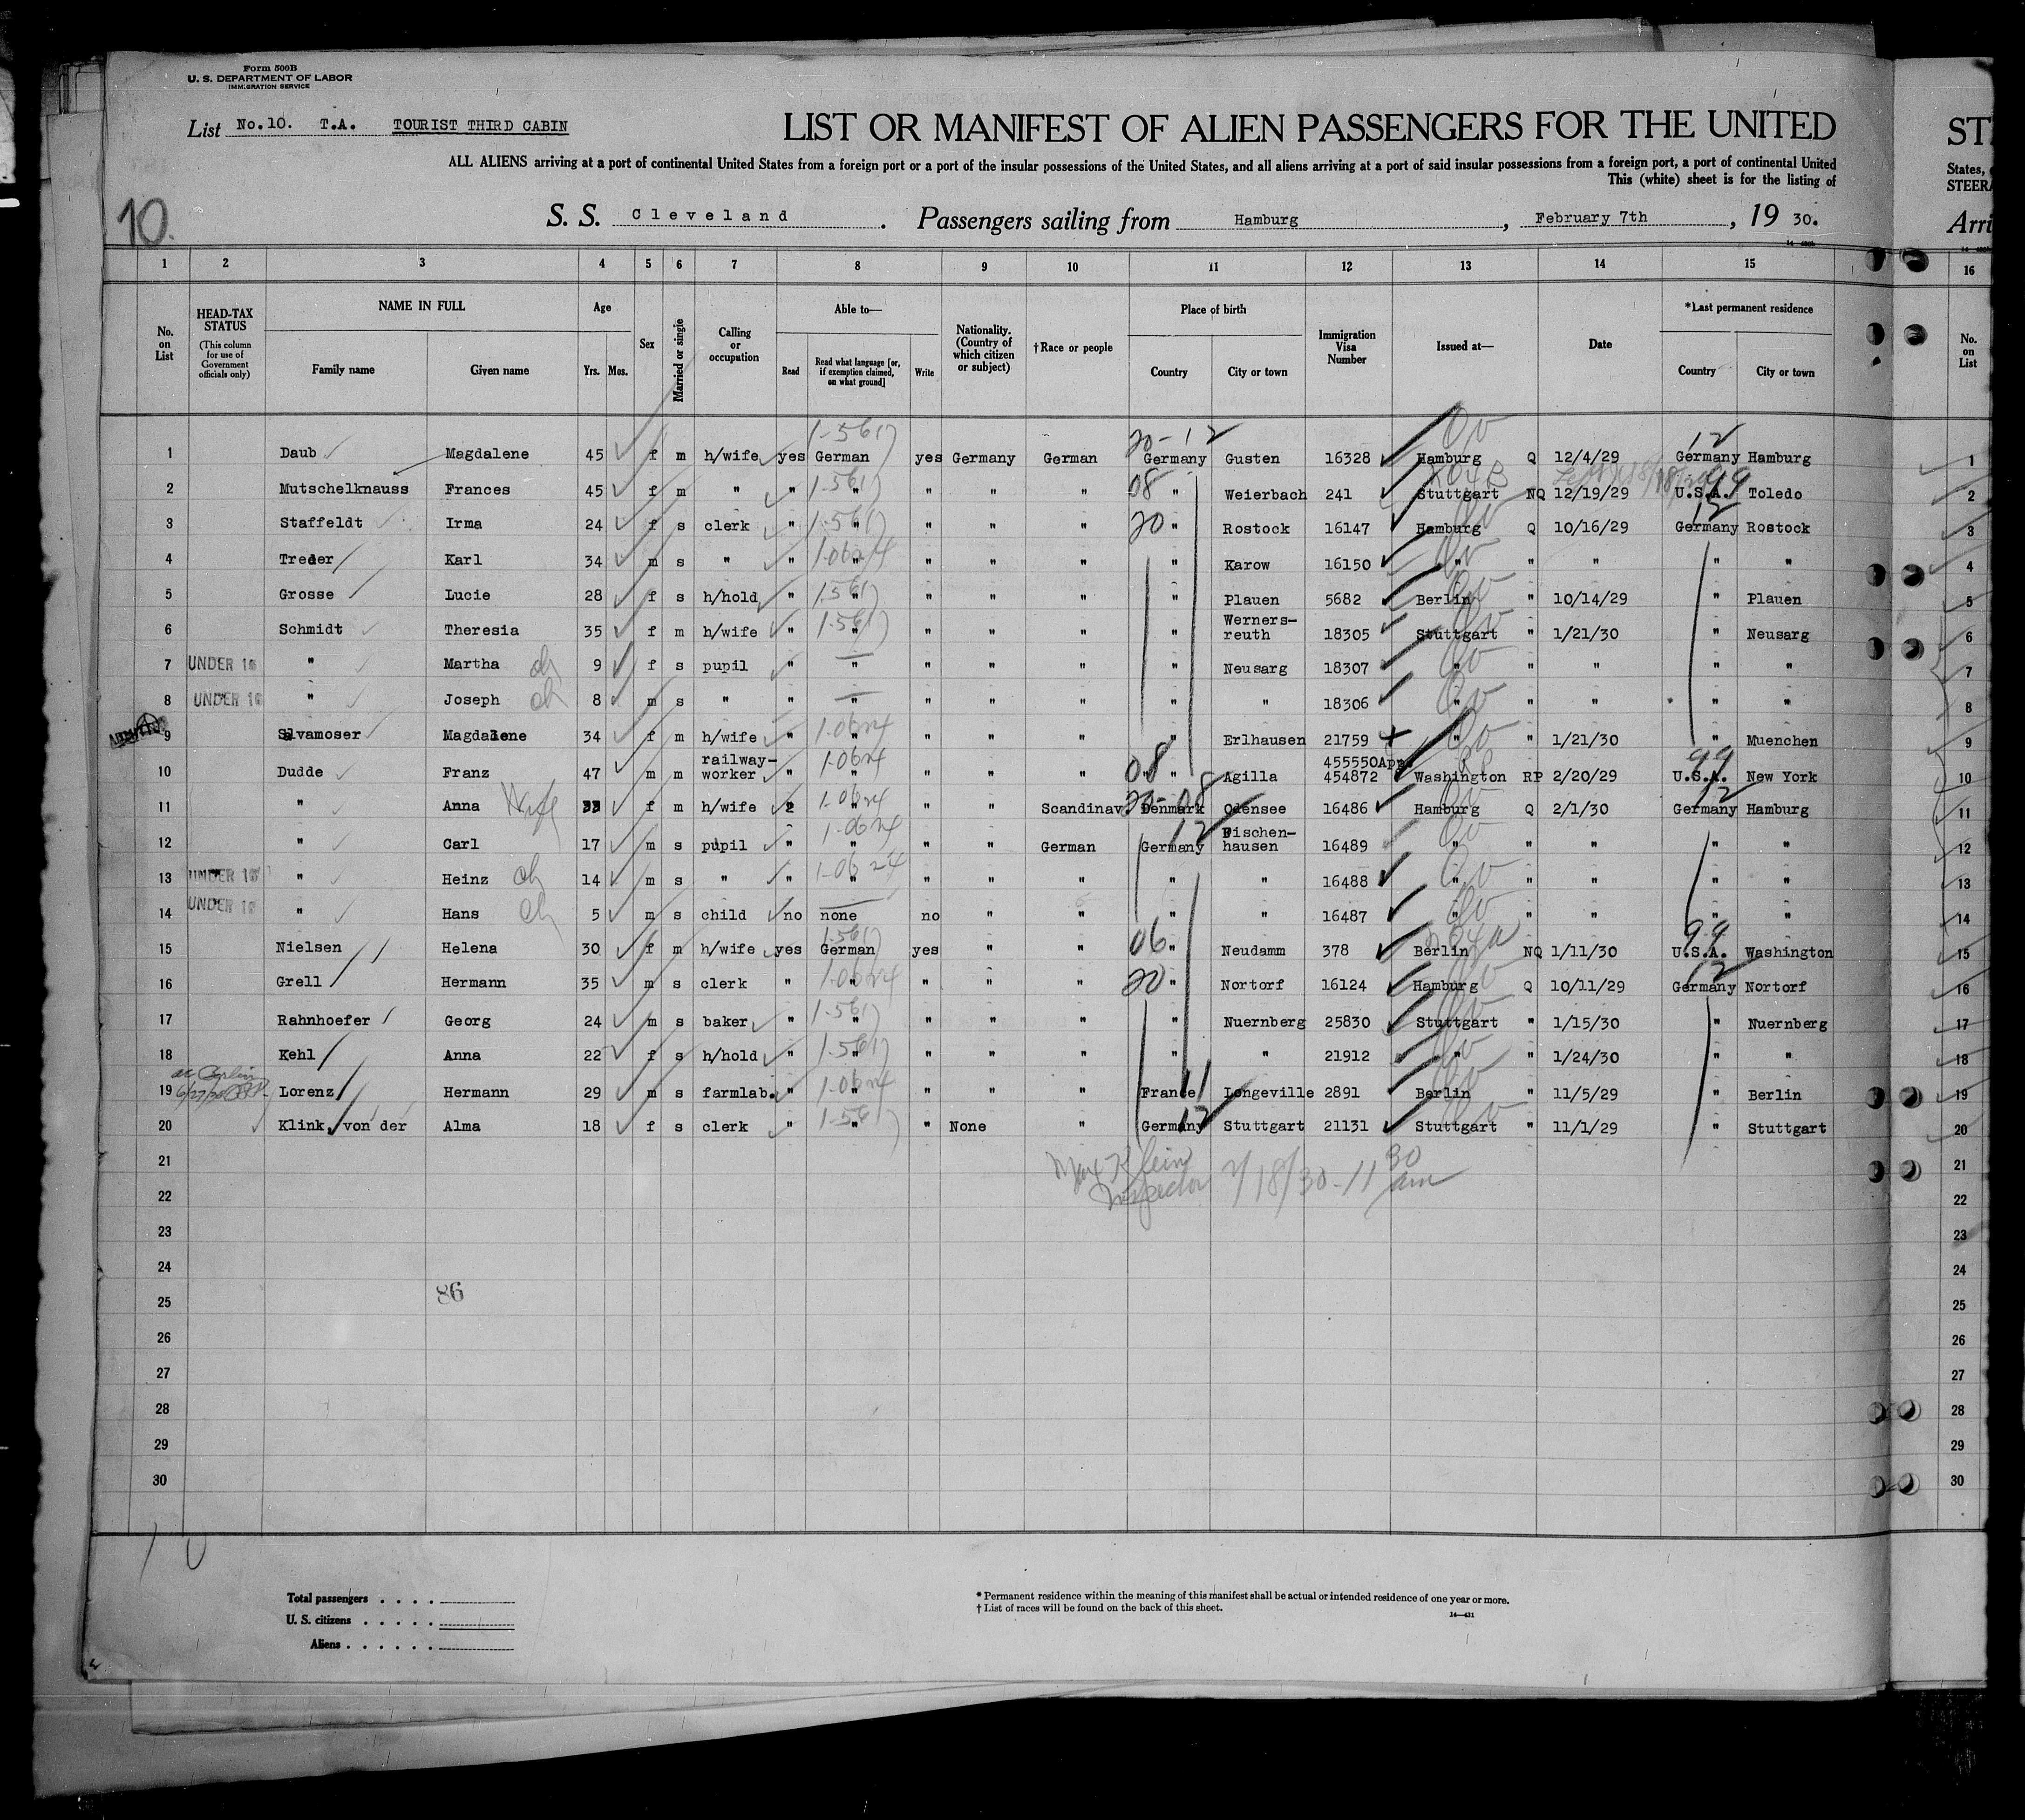 Form 500B
U. S. DEPARTMENT OF LABOR
IMMIGRATION SERVICE
List No.10. T.A. TOURIST THIRD CABIN
LIST OR MANIFEST OF ALIEN PASSENGERS FOR THE UNITED
ST
ALL ALIENS arriving at a port of continental United States from a foreign port or a port of the insular possessions of the United States, and all aliens arriving at a port of said insular possessions from a foreign port, a port of continental United
States,
This (white) sheet is for the listing of
STEERA
10.
S. S. Cleveland. Passengers sailing from Hamburg, February 7th, 19 30.
Arri
1 2 3 4 5 6 7 8 9 10 11 12 13 14 15 16
No. on List
HEAD-TAX STATUS
(This column for use of Government officials only)
NAME IN FULL
Family name
Given name
Age
Yrs. Mos.
Sex
Married or single
Calling or occupation
Able to—
Read
Read what language [or, if exemption claimed, on what ground]
Write
Nationality. (Country of which citizen or subject)
†Race or people
Place of birth
Country
City or town
Immigration Visa Number
Issued at—
Date
*Last permanent residence
Country
City or town
No. on List
1 Daub Magdalene 45 f m h/wife yes German yes Germany German Germany Gusten 16328 Hamburg Q 12/4/29 Germany Hamburg 1
2 Mutschelknauss Frances 45 f m " " " " " " " Weierbach 241 Stuttgart NQ 12/19/29 U.S.A. Toledo 2
3 Staffeldt Irma 24 f s clerk " " " " " " Rostock 16147 Hamburg Q 10/16/29 Germany Rostock 3
4 Treder Karl 34 m s " " " " " " " Karow 16150 " " " " " 4
5 Grosse Lucie 28 f s h/hold " " " " " " Plauen 5682 Berlin " 10/14/29 " Plauen 5
6 Schmidt Theresia 35 f m h/wife " " " " " " Werners-reuth 18305 Stuttgart " 1/21/30 " Neusarg 6
7 UNDER 16 " Martha ch 9 f s pupil " " " " " " Neusarg 18307 " " " " " 7
8 UNDER 16 " Joseph ch 8 m s " " " " " " " " 18306 " " " " " 8
9 Salvamoser Magdalene 34 f m h/wife " " " " " " Erlhausen 21759 " " 1/21/30 " Muenchen 9
10 Dudde Franz 47 m m railway-worker " " " " " " Agilla 455550App. 454872 Washington RP 2/20/29 U.S.A. New York 10
11 " Anna Wife 33 f m h/wife " " " " Scandinav. Denmark Odensee 16486 Hamburg Q 2/1/30 Germany Hamburg 11
12 " Carl 17 m s pupil " " " " German Germany Fischen-hausen 16489 " " " " " 12
13 UNDER 16 " Heinz ch 14 m s " " " " " " " " 16488 " " " " " 13
14 UNDER 16 " Hans ch 5 m s child no none no " " " " 16487 " " " " " 14
15 Nielsen Helena 30 f m h/wife yes German yes " " " Neudamm 378 Berlin NQ 1/11/30 U.S.A. Washington 15
16 Grell Hermann 35 m s clerk " " " " " " Nortorf 16124 Hamburg Q 10/11/29 Germany Nortorf 16
17 Rahnhoefer Georg 24 m s baker " " " " " " Nuernberg 25830 Stuttgart " 1/15/30 " Nuernberg 17
18 Kehl Anna 22 f s h/hold " " " " " " " 21912 " " 1/24/30 " " 18
19 Lorenz Hermann 29 m s farmlab. " " " " " France Longeville 2891 Berlin " 11/5/29 " Berlin 19
20 Klink, von der Alma 18 f s clerk " " " None " Germany Stuttgart 21131 Stuttgart " 11/1/29 " Stuttgart 20
Max Klein
Inspector 2/18/30 - 11 30 am
21 21
22 22
23 23
24 24
86
25 25
26 26
27 27
28 28
29 29
30 30
Total passengers . . . .
U. S. citizens . . . . .
Aliens . . . . . .
* Permanent residence within the meaning of this manifest shall be actual or intended residence of one year or more.
† List of races will be found on the back of this sheet.
14—431